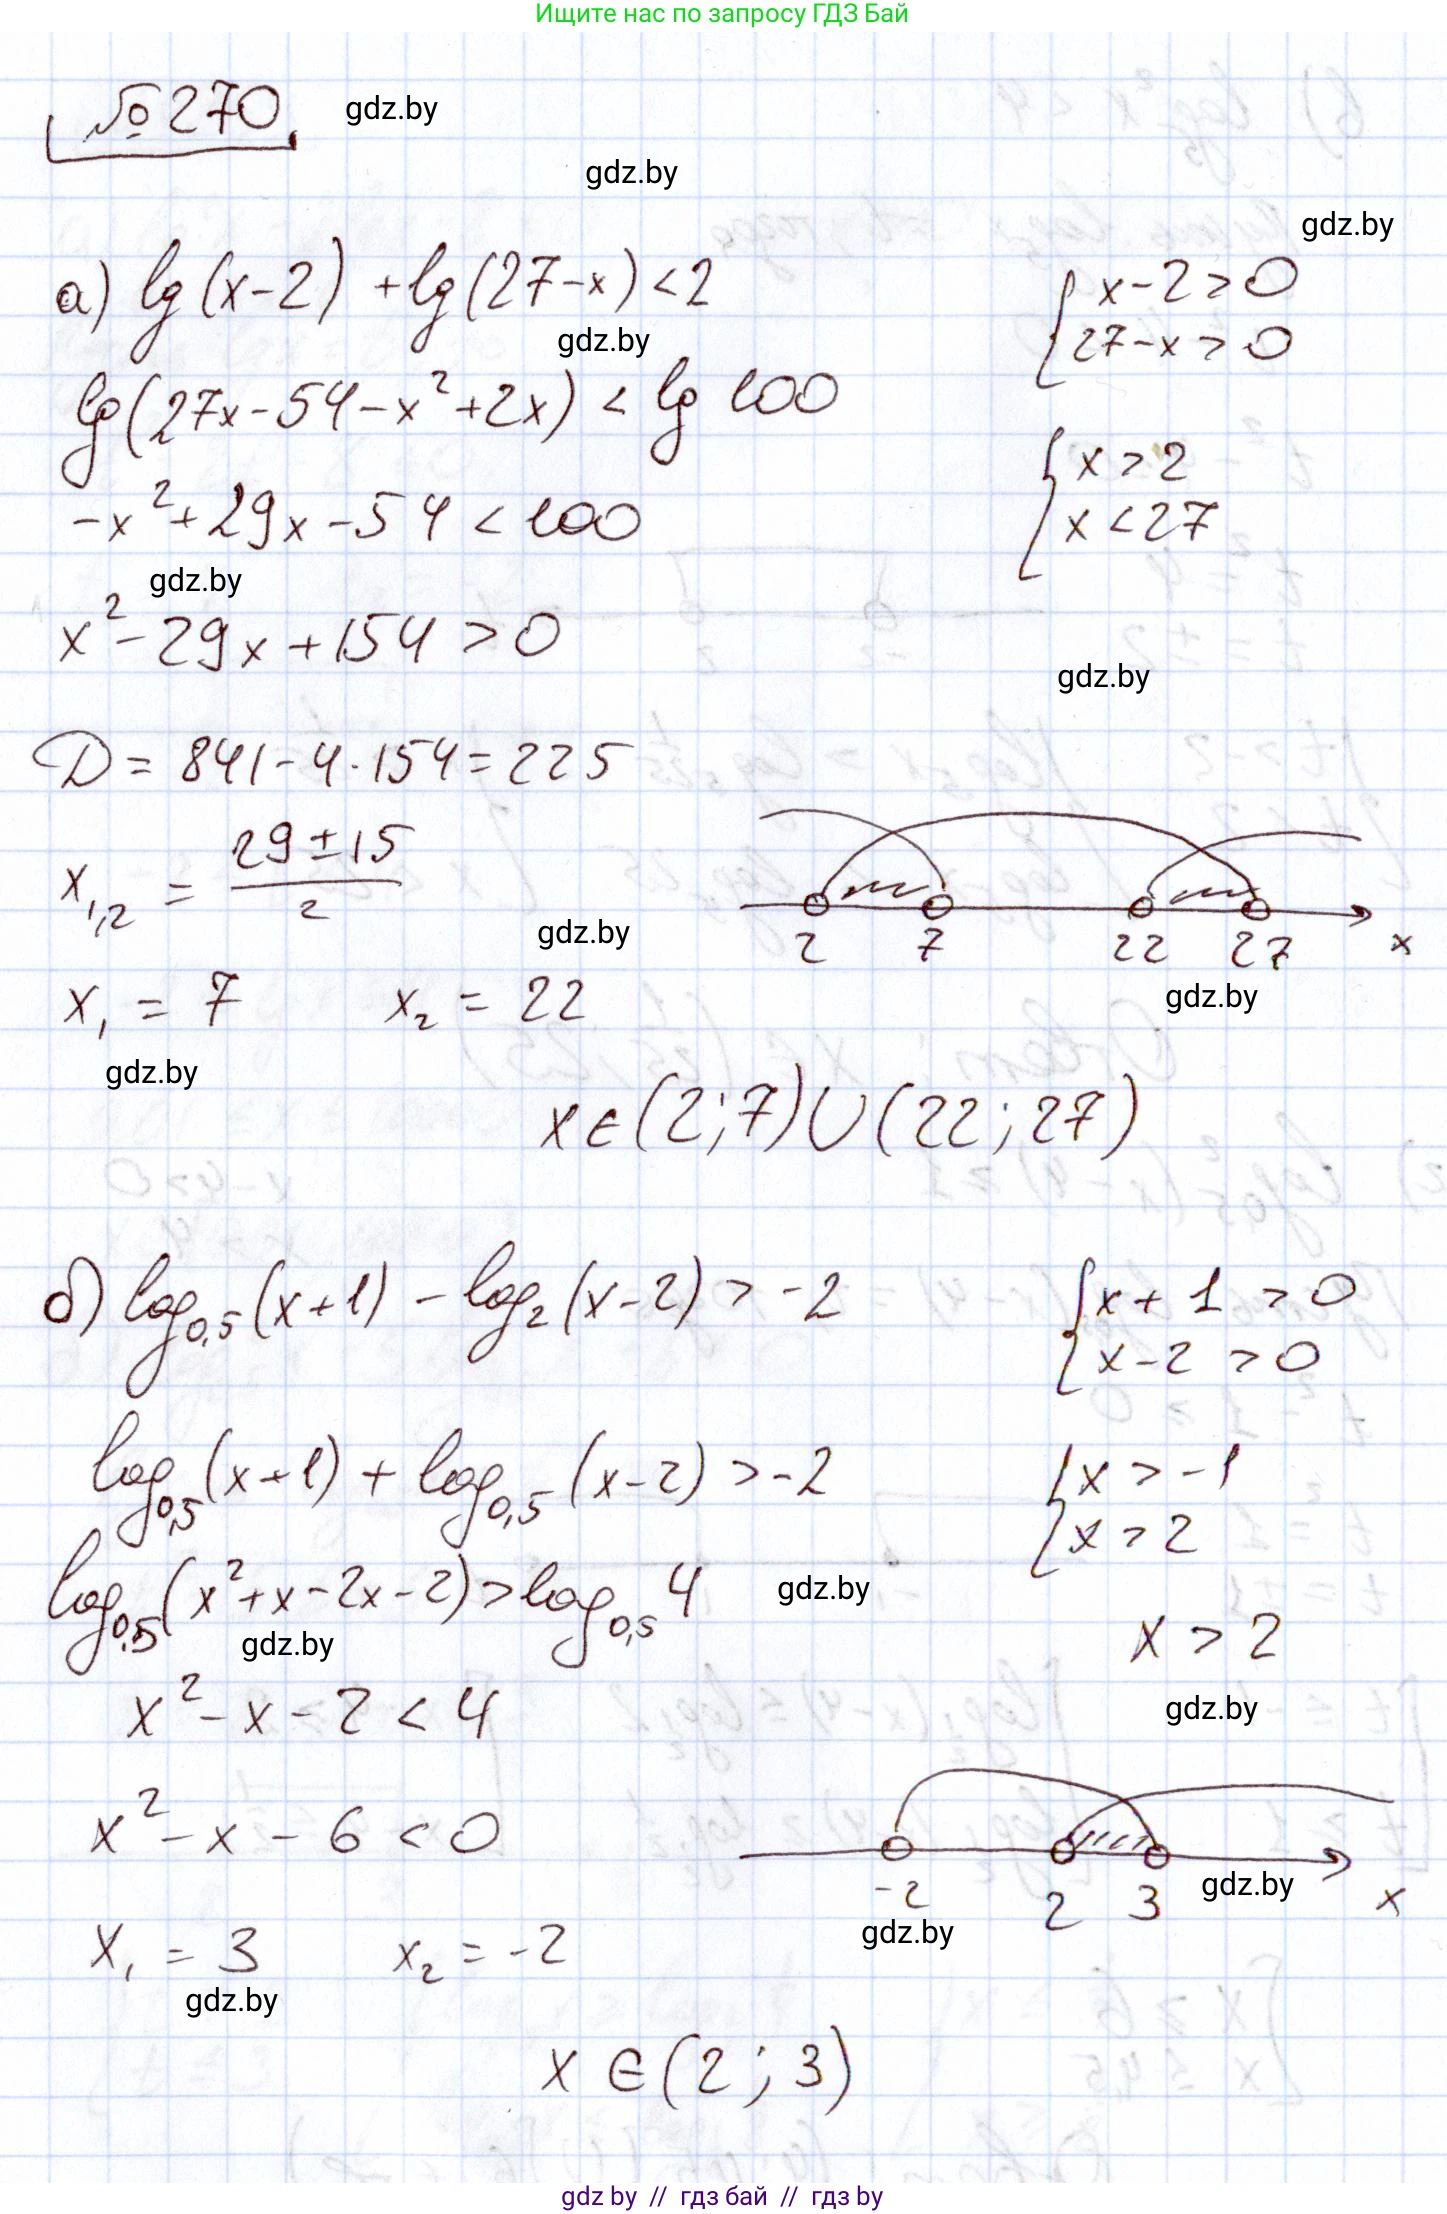 Ищите нас по запросу ГДЗ Бай
№270 gdz.by
gdz.by
gdz.by
а) lg(x-2) + lg(27-x) < 2
{ x-2 > 0
27-x > 0
gdz.by
lg(27x-54-x²+2x) < lg 100
{ x > 2
x < 27
-x²+29x-54 < 100
gdz.by
x²-29x+154 > 0
gdz.by
D = 841-4·154 = 225
x₁,₂ = (29±15)/2
gdz.by
2 7 22 27 x
gdz.by
x₁ = 7 x₂ = 22
gdz.by
x∈(2;7)∪(22;27)
б) log₀,₅(x+1) - log₂(x-2) > -2
{ x+1 > 0
x-2 > 0
log₀,₅(x+1) + log₀,₅(x-2) > -2
{ x > -1
x > 2
log₀,₅(x²+x-2x-2) > log₀,₅ 4
gdz.by
gdz.by
x > 2
x²-x-2 < 4
gdz.by
x²-x-6 < 0
-2 2 3 x
gdz.by
gdz.by
x₁ = 3 x₂ = -2
gdz.by
x ∈ (2; 3)
gdz by // гдз бай // гдз by